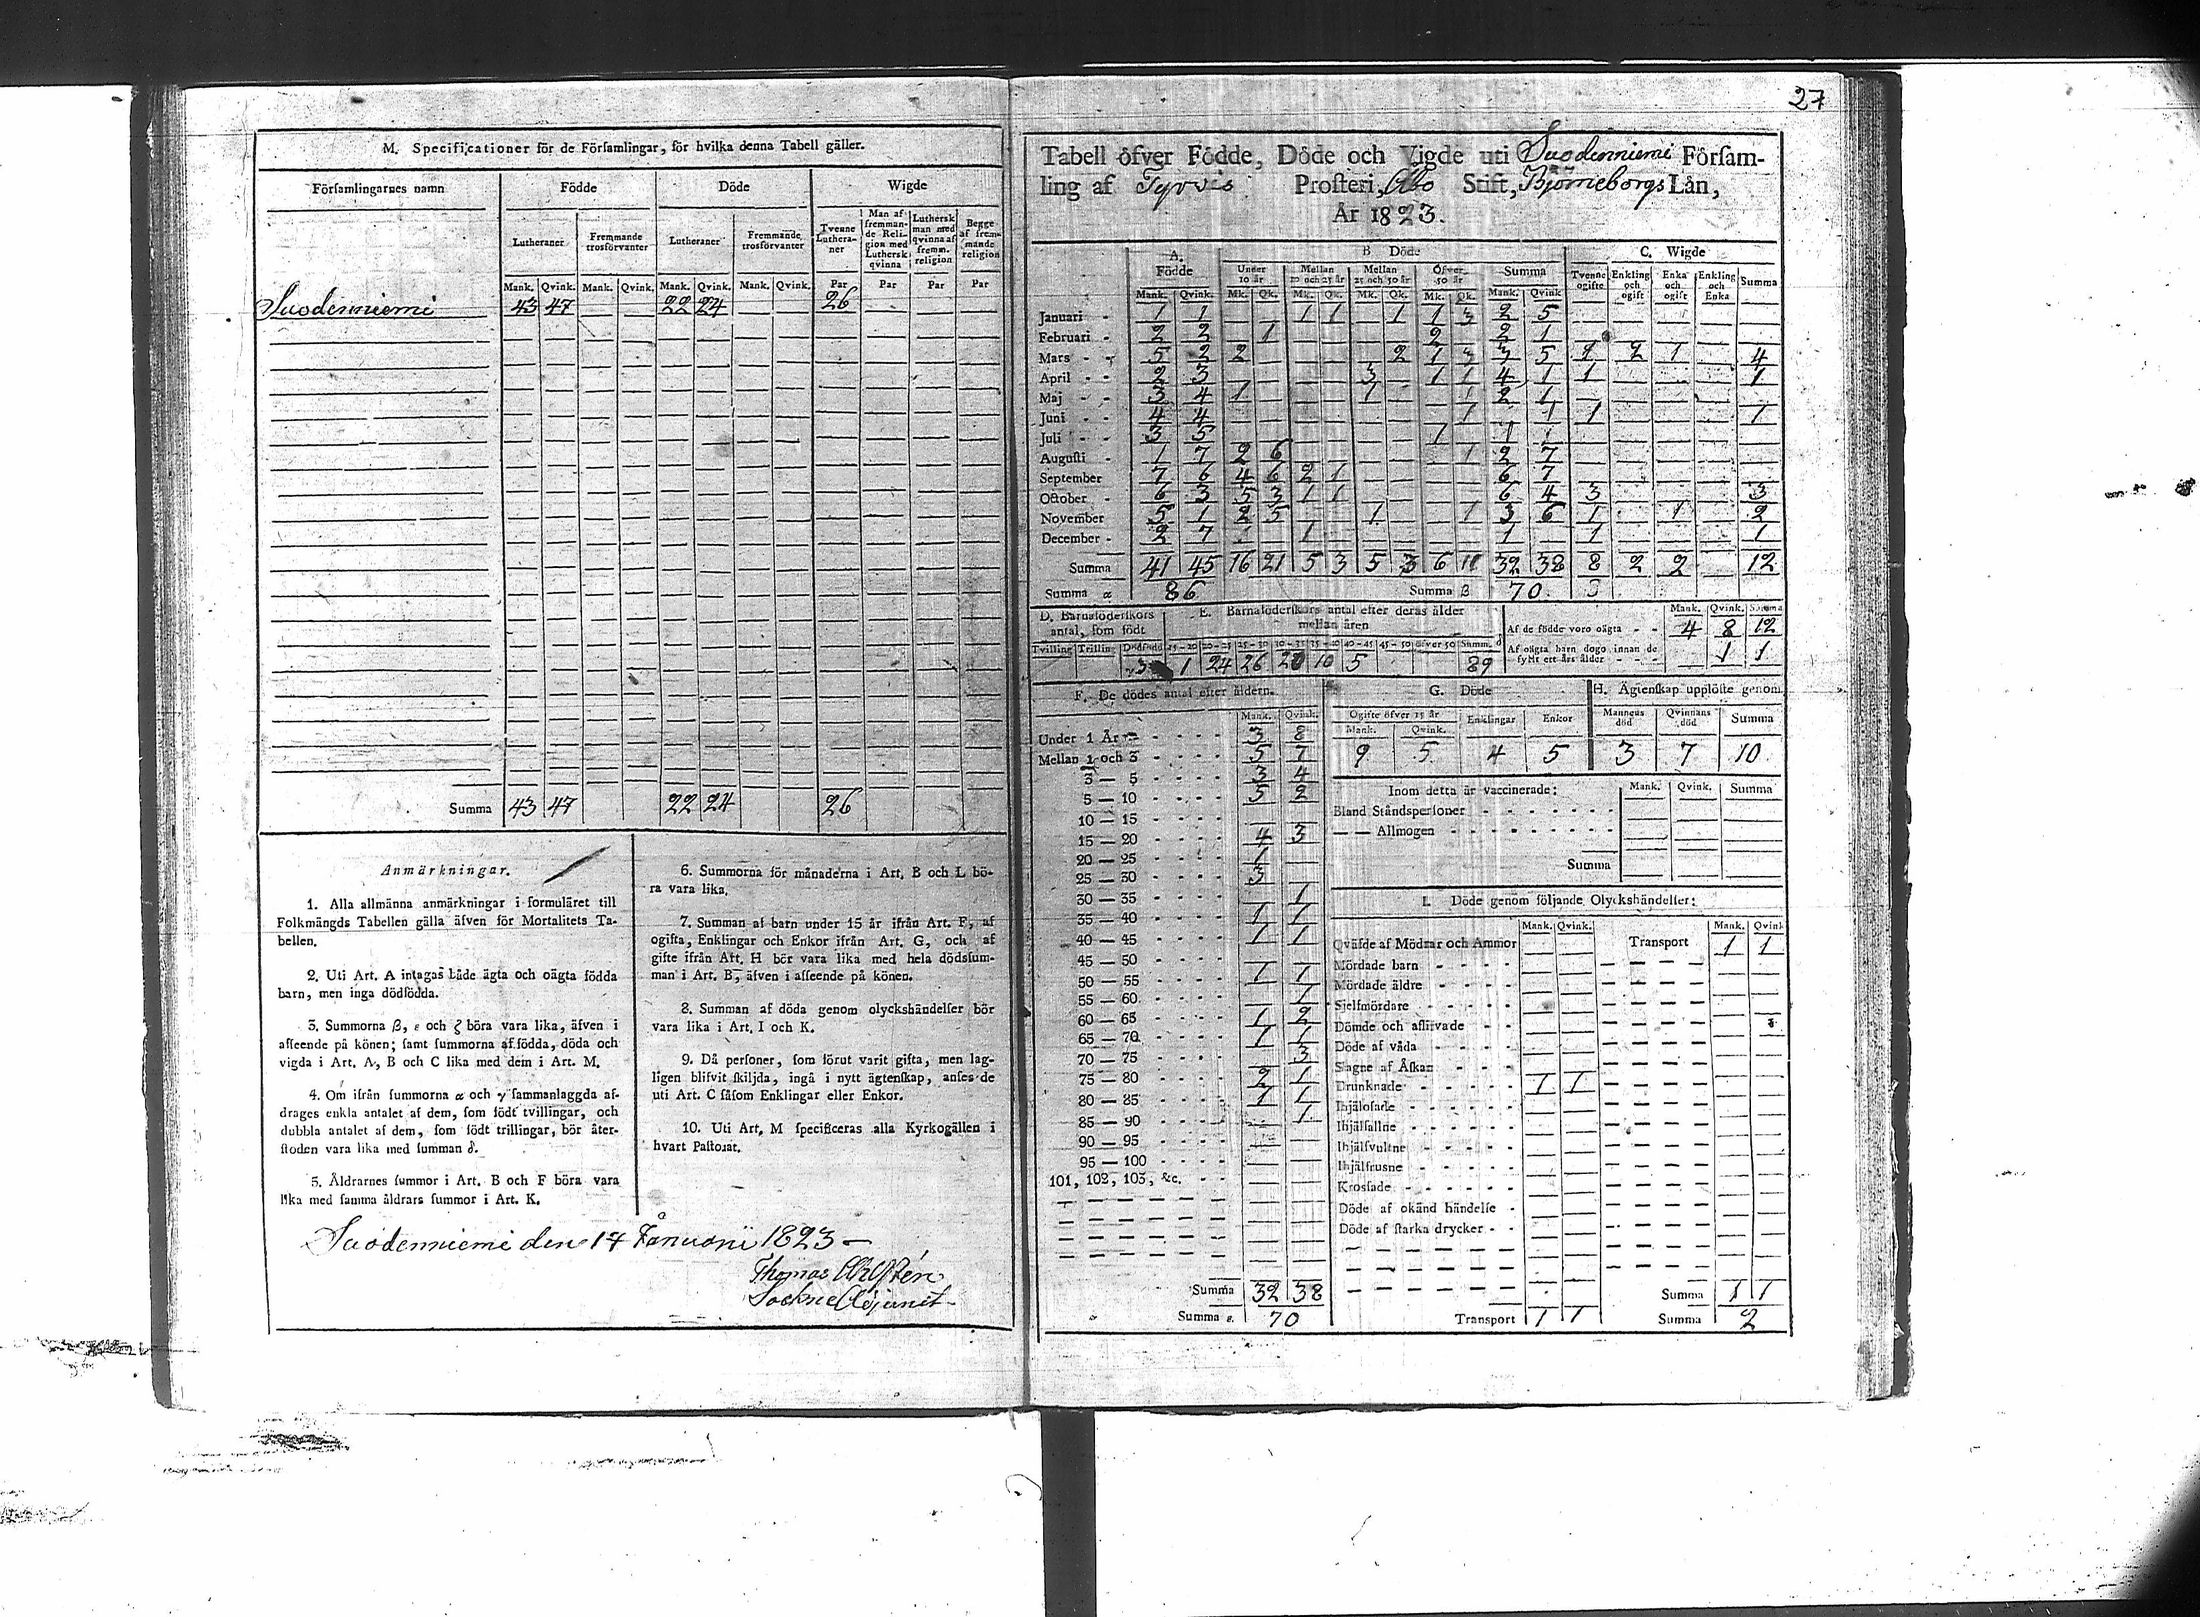 27
M. Specificationer för de Församlingar, för hvilka denna Tabell gäller.
Församlingarnes namn Födde Döde Wigde
Lutheraner Fremmande trosförvanter Lutheraner Fremmande trosförvanter Tvenne Lutheraner Man af fremmande Religion med Luthersk qvinna Luthersk man med qvinna af fremm. religion Begge af fremmande religion
Mank. Qvink. Mank. Qvink. Mank. Qvink. Mank. Qvink. Par Par Par Par
Suodenniemi 43 47 — — 22 24 — — 26 — — —
Summa 43 47 22 24 26
Anmärkningar.
1. Alla allmänna anmärkningar i formuläret till
Folkmängds Tabellen gälla äfven för Mortalitets Ta-
bellen.
2. Uti Art. A intagas både ägta och oägta födda
barn, men inga dödfödda.
3. Summorna ß, ε och ζ böra vara lika, äfven i
afseende på könen; samt summorna af födda, döda och
vigda i Art. A, B och C lika med dem i Art. M.
4. Om ifrån summorna α och γ sammanlaggda af-
drages enkla antalet af dem, som födt tvillingar, och
dubbla antalet af dem, som födt trillingar, bör åter-
stoden vara lika med summan δ.
5. Åldrarnes summor i Art. B och F böra vara
lika med samma åldrars summor i Art. K.
6. Summorna för månaderna i Art. B och L bö-
ra vara lika.
7. Summan af barn under 15 år ifrån Art. F, af
ogifta, Enklingar och Enkor ifrån Art. G, och af
gifte ifrån Art. H bör vara lika med hela dödssum-
man i Art. B, äfven i afseende på könen.
8. Summan af döda genom olyckshändelser bör
vara lika i Art. I och K.
9. Då personer, som förut varit gifta, men lag-
ligen blifvit skiljda, ingå i nytt ägtenskap, anses de
uti Art. C såsom Enklingar eller Enkor.
10. Uti Art. M specificeras alla Kyrkogällen i
hvart Pastorat.
Suodenniemi den 14 Januarii 1823 —
Thomas
Tabell öfver Födde, Döde och Vigde uti Suodenniemi Församling
af Tyrvis Prosteri, Åbo Stift, Björneborgs Län,
År 1823.
A. Födde B Döde C. Wigde
Under 10 år Mellan 10 och 25 år Mellan 25 och 50 år Öfver 50 år Summa Tvenne ogifte Enkling och ogift Enka och ogift Enkling och Enka Summa
Mank. Qvink. Mk. Qk. Mk. Qk. Mk. Qk. Mk. Qk. Mank. Qvink
Januari - 1 1 — — 1 1 — 1 1 3 2 5 — — — — —
Februari - 2 2 — 1 — — — — 2 — 2 1 — — — — —
Mars - - 5 2 2 — — — — 2 1 3 3 5 1 2 1 — 4
April - - 2 3 — — — — 3 — 1 1 4 1 1 — — — 1
Maj - - 3 4 1 — — — 1 — — 1 2 1 — — — — —
Juni - - 4 4 — — — — — — — 1 — 1 1 — — — 1
Juli - - 3 5 — — — — — — 1 — 1 — — — — —
Augusti - 1 7 2 6 — — — — — 1 2 7 — — — — —
September 7 6 4 6 2 1 — — — — 6 7 — — — — —
October - 6 3 5 3 1 1 — — — — 6 4 3 — — — 3
November 5 1 2 5 — — 1 — — 1 3 6 1 — 1 — 2
December - 2 7 — — 1 — — — — — 1 — 1 — — — 1
Summa 41 45 16 21 5 3 5 3 6 11 32 38 8 2 2 — 12
Summa α 86 Summa ß 70
D. Barnsöderskors antal, som födt
E. Barnsöderskors antal efter deras ålder mellan åren
Tvilling Trilling Dödfödd 15-20 20-25 25-30 30-35 35-40 40-45 45-50 öfver 50 Summ. δ
3 1 24 26 20 10 5 89
Mank. Qvink. Summa
Af de födde voro oägta - - 4 8 12
Af oägta barn dogo innan de fyllt ett års ålder - - - 1 1
F. De dödes antal efter åldern.
Mank. Qvink.
Under 1 År - - - - 3 8
Mellan 1 och 3 - - - - 5 7
3 — 5 - - - - 3 4
5 — 10 - - - - 5 2
10 — 15 - - - - — —
15 — 20 - - - - 4 3
20 — 25 - - - - 1 —
25 — 30 - - - - 3 —
30 — 35 - - - - — 1
35 — 40 - - - - 1 1
40 — 45 - - - - 1 1
45 — 50 - - - - — —
50 — 55 - - - - 1 1
55 — 60 - - - - — 1
60 — 65 - - - - 1 2
65 — 70 - - - - 1 1
70 — 75 - - - - — 3
75 — 80 - - - - 2 1
80 — 85 - - - - 1 1
85 — 90 - - - - — 1
90 — 95 - - - - — —
95 — 100 - - - - — —
101, 102, 103, &c. - - — —
Summa 32 38
Summa ε. 70
G. Döde
Ogifte öfver 15 år Enklingar Enkor
Mank. Qvink.
9 5 4 5
H. Ägtenskap upplöste genom
Mannens död Qvinnans död Summa
3 7 10
Inom detta år vaccinerade: Mank. Qvink. Summa
Bland Ståndspersoner - - - - - - -
— — Allmogen - - - - - - - - -
Summa
I. Döde genom följande Olyckshändelser:
Mank. Qvink. Mank. Qvink
Qväfde af Mödrar och Ammor — — Transport 1 1
Mördade barn - - - -
Mördade äldre - - - -
Sjelfmördare - - - - -
Dömde och aflifvade - -
Döde af våda - - - -
Slagne af Åskan - - -
Drunknade - - - - - 1 1
Ihjälsofade - - - - -
Ihjälfallne - - - - -
Ihjälsvultne - - - - -
Ihjälfrusne - - - - -
Krossade - - - - - -
Döde af okänd händelse -
Döde af starka drycker - -
Summa 1 1
Transport 1 1 Summa 2